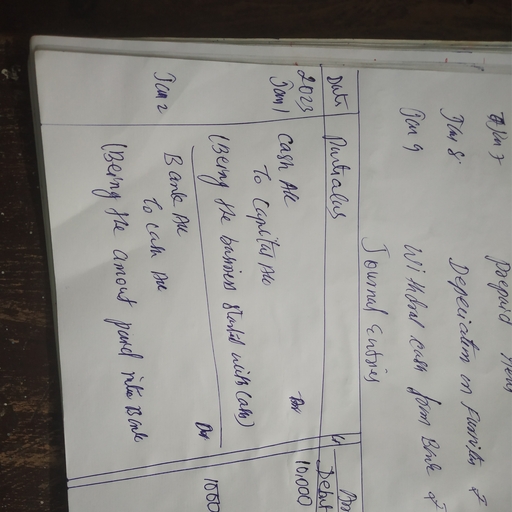 Jan 7 Prepaid
Jan 8 Depreciation on Furniture
Jan 9 Withdrew cash from Bank
Journal Entries
Date Particulars Debit
2023
Jan 1 Cash A/c Dr 10,000
To Capital A/c
(Being the business started with cash)
Jan 2 Bank A/c Dr 1000
To cash A/c
(Being the amount paid into Bank